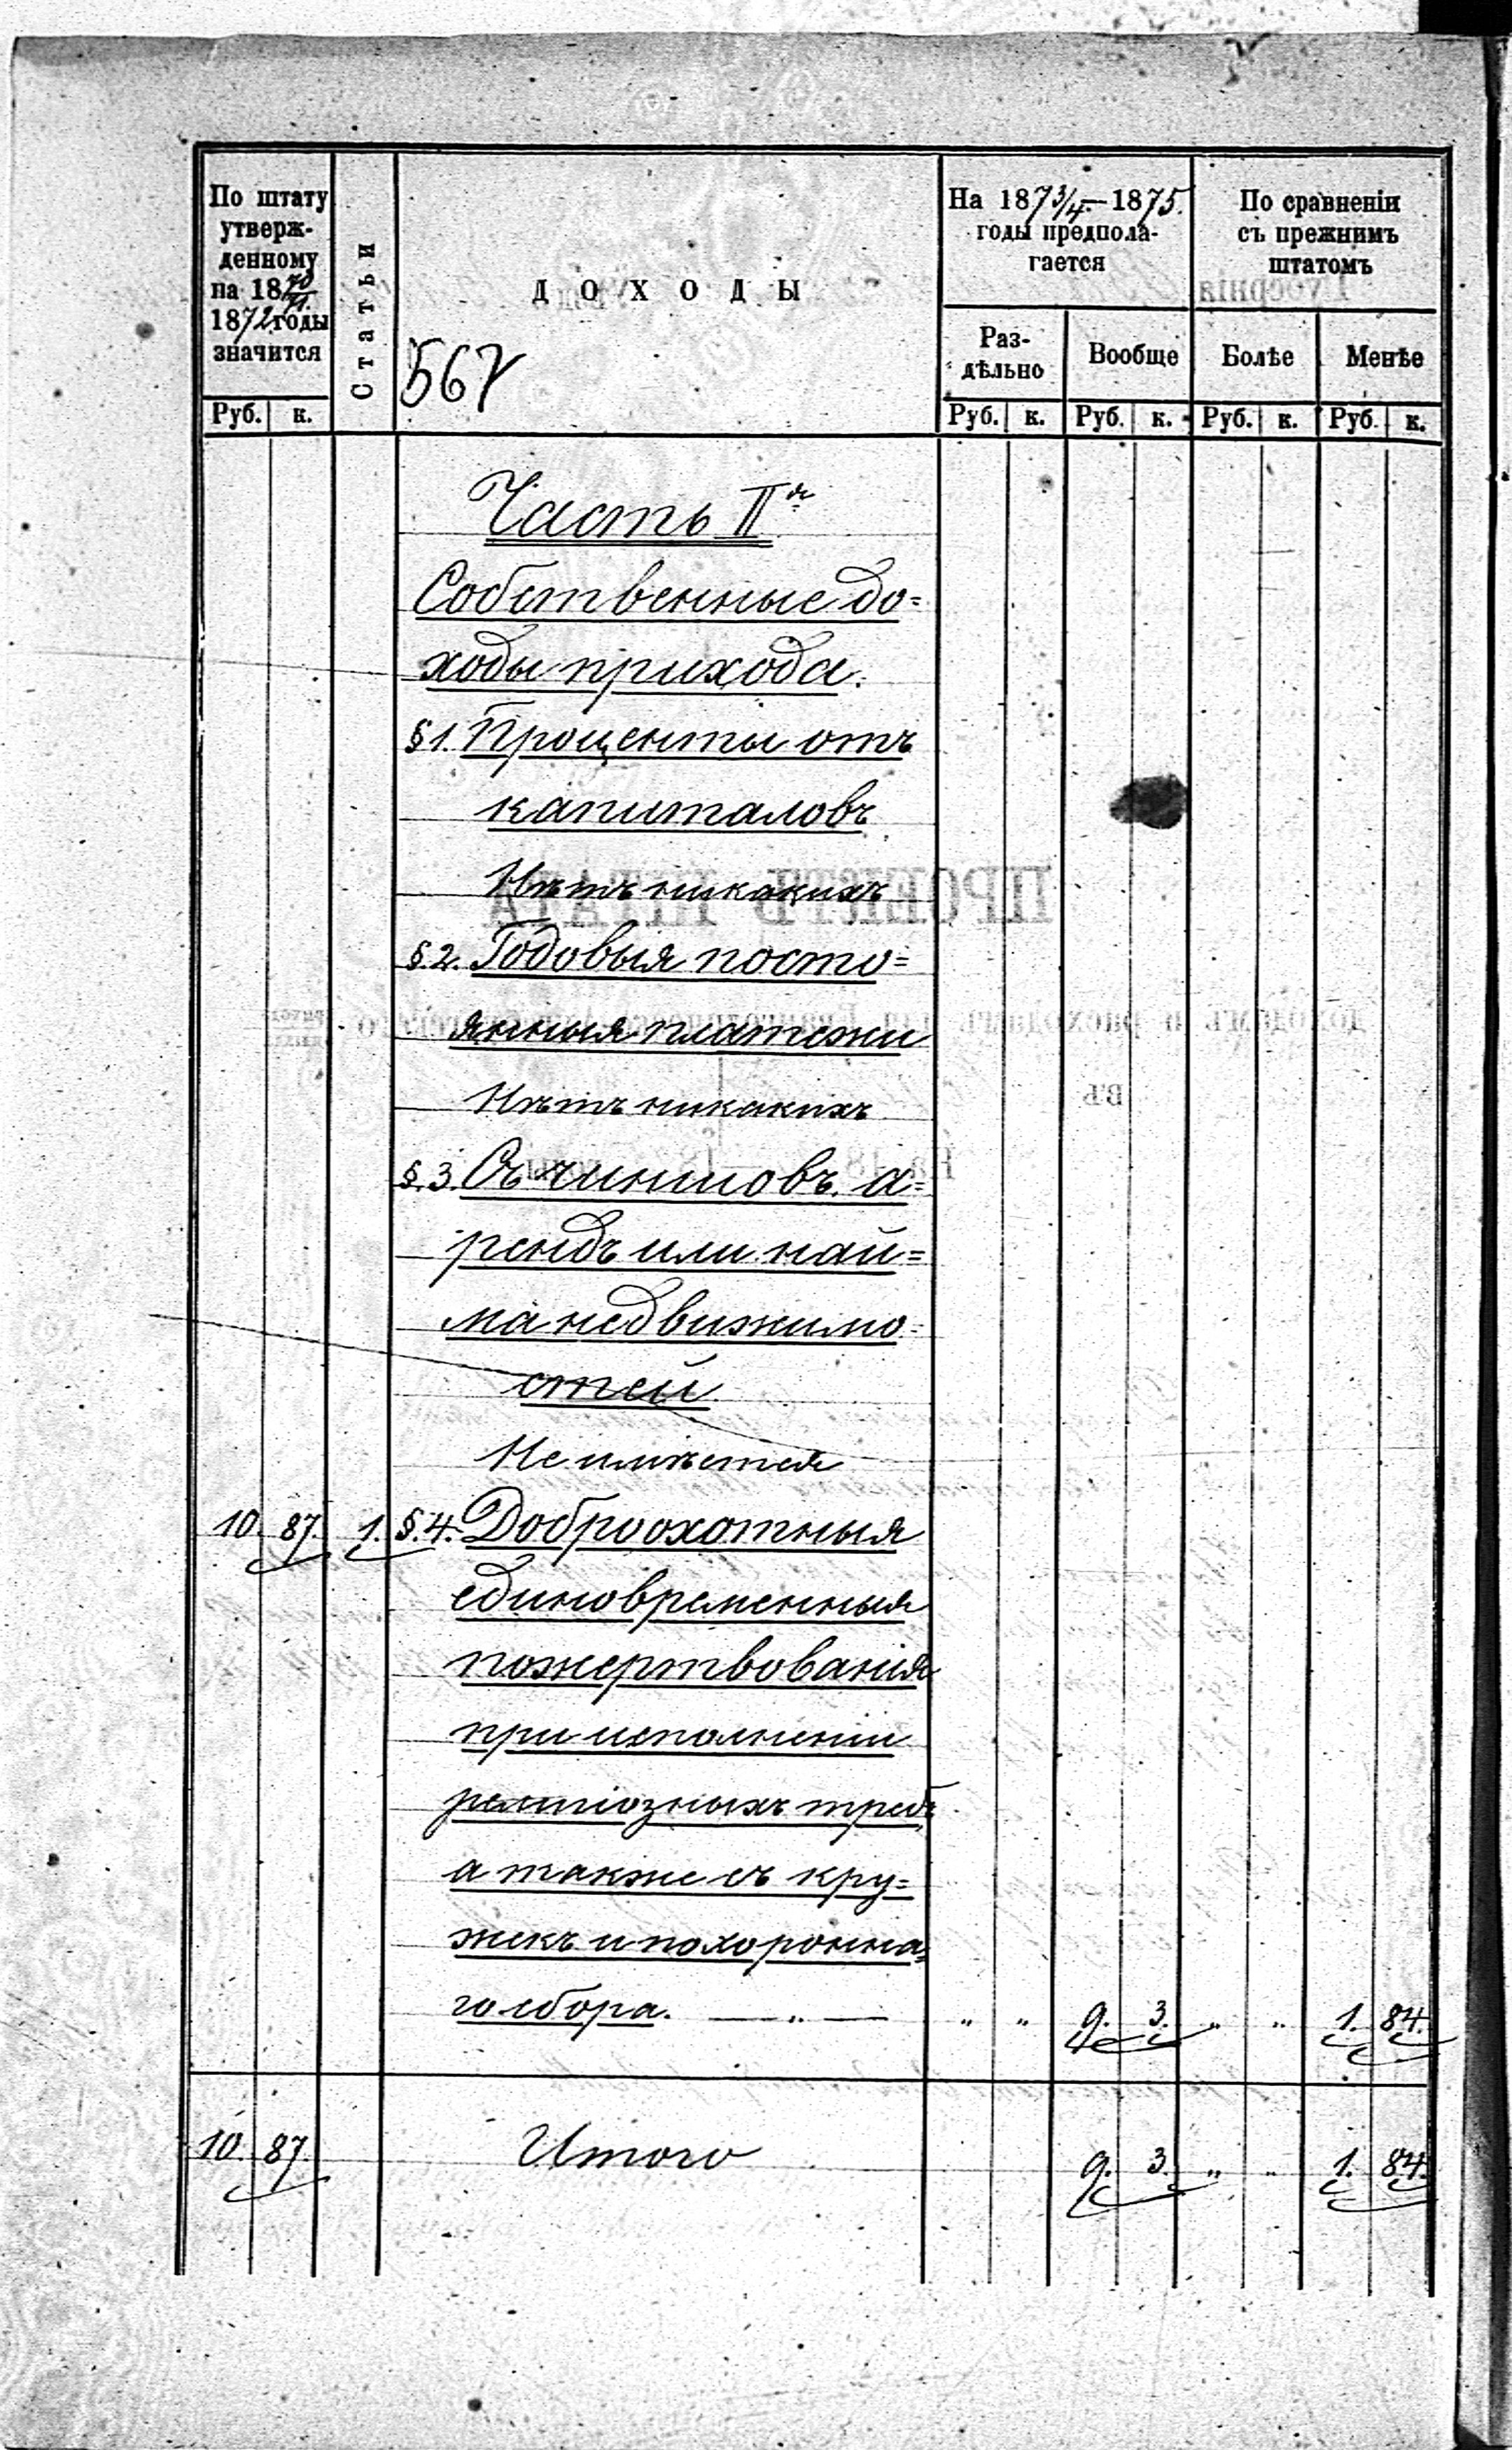 По штату
утверж-
денному
на 1870/71.
1872 годы
значится
Руб. к.
Статьи
ДОХОДЫ
567
На 1873/4.–1875.
годы предпола-
гается
Раз-
дѣльно
Вообще
Руб. к. Руб. к.
По сравненіи
съ прежнимъ
штатомъ
Болѣе
Менѣе
Руб. к. Руб. к.
Часть IIя
Собственные до=
ходы прихода.
§ 1. Проценты отъ
капиталовъ
Нѣтъ никакихъ
§. 2. Годовыя посто=
янныя платежи
Нѣтъ никакихъ
§. 3. Съ чиншовъ, а=
рендъ или най=
ма недвижимо=
стей
Не имѣется
10. 87. 1. §. 4. Доброохотныя
единовременныя
пожертвованія
при исполненіи
религіозныхъ требъ
а также съ кру=
жекъ и похоронна=
го сбора. — „ — „ „ 9. 3. „ „ 1. 84.
10. 87. Итого 9. 3. „ „ 1. 84.